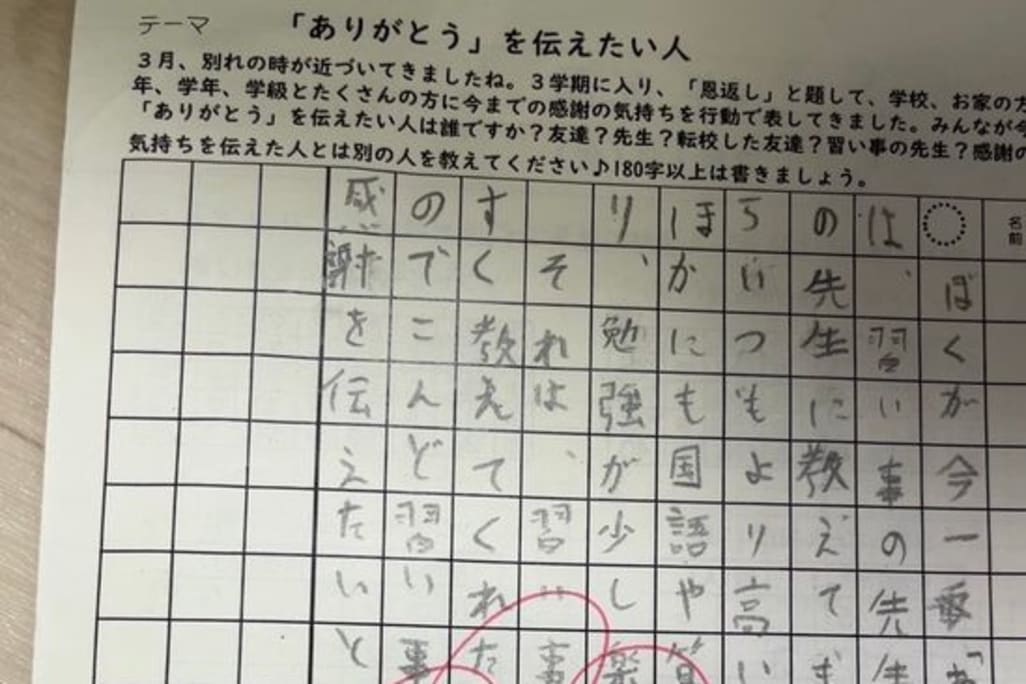 テーマ 「ありがとう」を伝えたい人
３月、別れの時が近づいてきましたね。３学期に入り、「恩返し」と題して、学校、お家の方
年、学年、学級とたくさんの方に今までの感謝の気持ちを行動で表してきました。みんなが今
「ありがとう」を伝えたい人は誰ですか？友達？先生？転校した友達？習い事の先生？感謝の
気持ちを伝えた人とは別の人を教えてください♪180字以上は書きましょう。
名前
ぼくが今一番あ
は、習い事の先生
の先生に教えて
らいつもより高い
ほかにも国語や算
り、勉強が少し楽
それは、習い事
すく教えてくれた
のでこんど習い事
感謝を伝えたいと